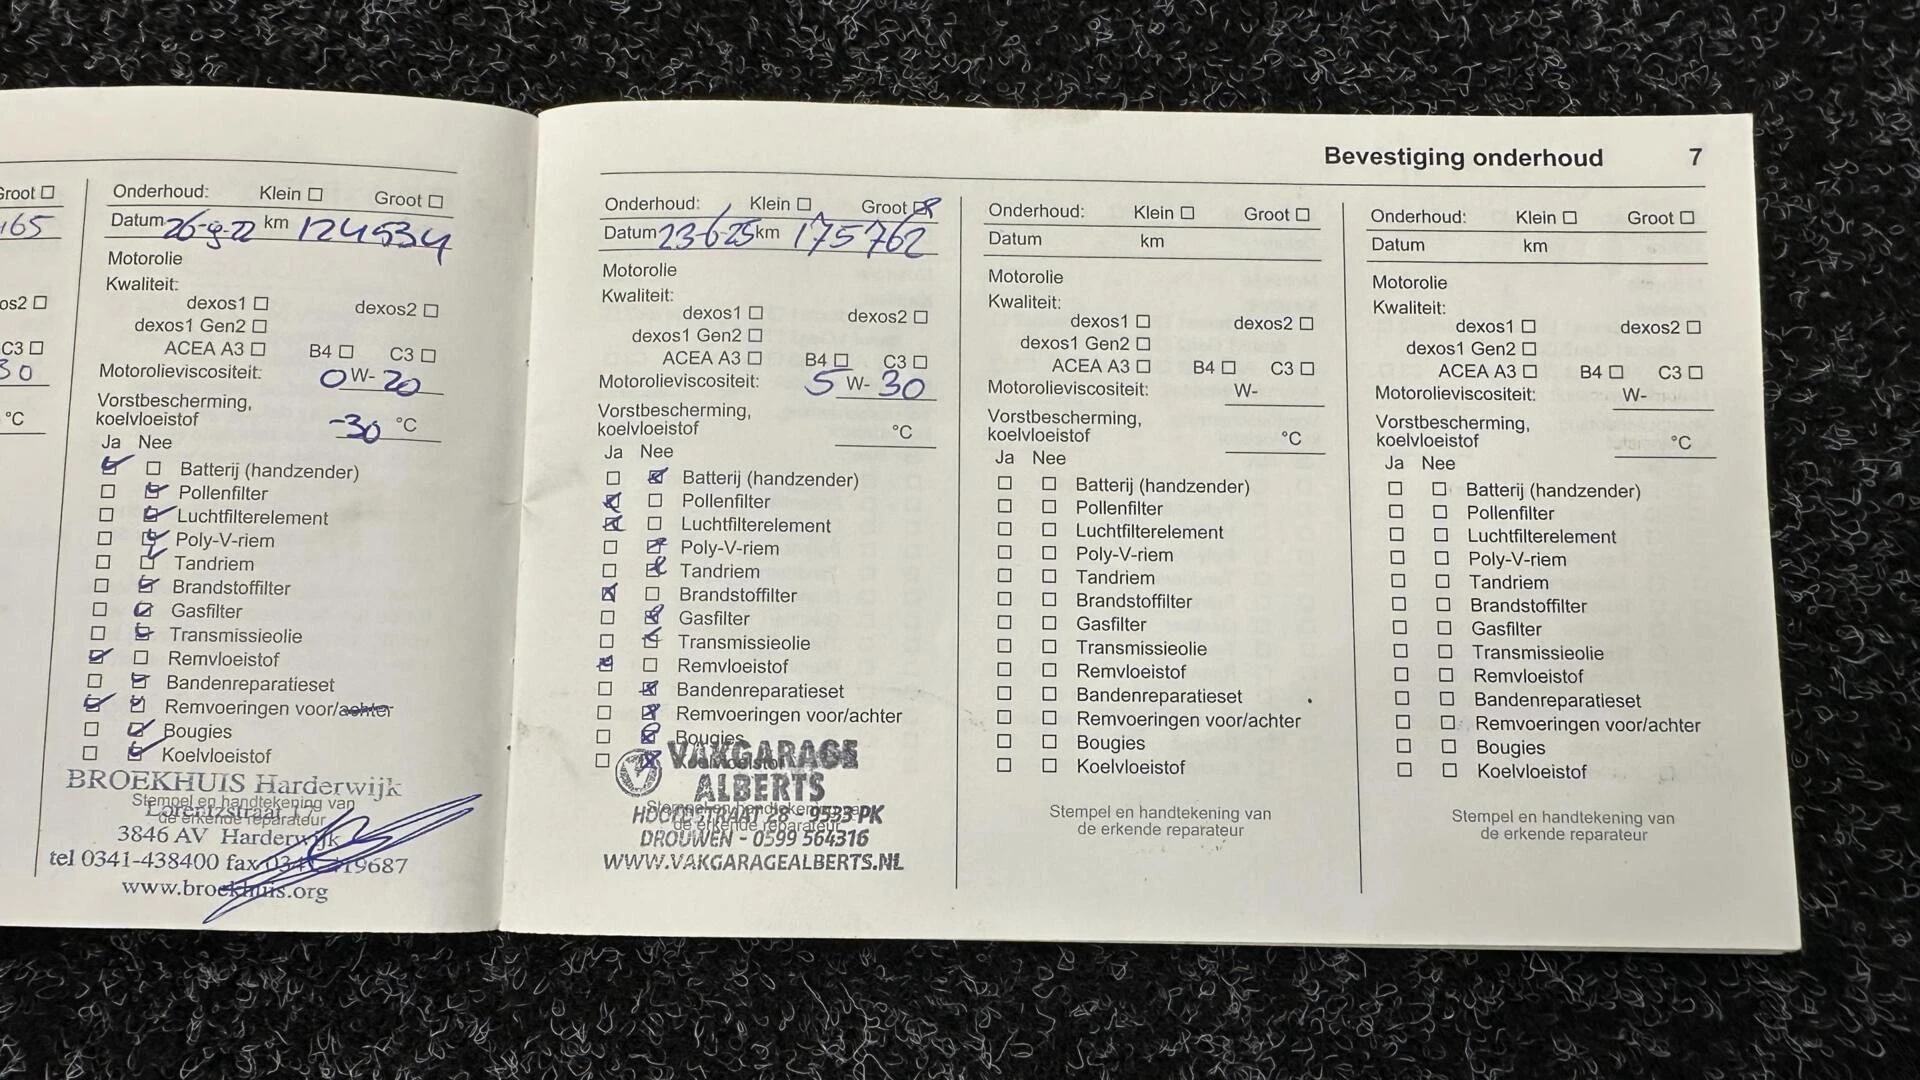 Groot
465
os2
C3
30
°C
Onderhoud: Klein Groot
Datum 26-9-22 km 124534
Motorolie
Kwaliteit:
dexos1 dexos2
dexos1 Gen2
ACEA A3 B4 C3
Motorolieviscositeit: 0 W- 20
Vorstbescherming,
koelvloeistof -30 °C
Ja Nee
Batterij (handzender)
Pollenfilter
Luchtfilterelement
Poly-V-riem
Tandriem
Brandstoffilter
Gasfilter
Transmissieolie
Remvloeistof
Bandenreparatieset
Remvoeringen voor/achter
Bougies
Koelvloeistof
BROEKHUIS Harderwijk
Stempel en handtekening van
Lorentzstraat 17
de erkende reparateur
3846 AV Harderwijk
tel 0341-438400 fax 0341-419687
www.broekhuis.org
Bevestiging onderhoud 7
Onderhoud: Klein Groot
Datum 23-6-25 km 175762
Motorolie
Kwaliteit:
dexos1 dexos2
dexos1 Gen2
ACEA A3 B4 C3
Motorolieviscositeit: 5 W- 30
Vorstbescherming,
koelvloeistof °C
Ja Nee
Batterij (handzender)
Pollenfilter
Luchtfilterelement
Poly-V-riem
Tandriem
Brandstoffilter
Gasfilter
Transmissieolie
Remvloeistof
Bandenreparatieset
Remvoeringen voor/achter
Bougies
Koelvloeistof
VAKGARAGE
ALBERTS
Stempel en handtekening van
HOOFDSTRAAT 28 - 9533 PK
de erkende reparateur
DROUWEN - 0599 564316
WWW.VAKGARAGEALBERTS.NL
Onderhoud: Klein Groot
Datum km
Motorolie
Kwaliteit:
dexos1 dexos2
dexos1 Gen2
ACEA A3 B4 C3
Motorolieviscositeit: W-
Vorstbescherming,
koelvloeistof °C
Ja Nee
Batterij (handzender)
Pollenfilter
Luchtfilterelement
Poly-V-riem
Tandriem
Brandstoffilter
Gasfilter
Transmissieolie
Remvloeistof
Bandenreparatieset
Remvoeringen voor/achter
Bougies
Koelvloeistof
Stempel en handtekening van
de erkende reparateur
Onderhoud: Klein Groot
Datum km
Motorolie
Kwaliteit:
dexos1 dexos2
dexos1 Gen2
ACEA A3 B4 C3
Motorolieviscositeit: W-
Vorstbescherming,
koelvloeistof °C
Ja Nee
Batterij (handzender)
Pollenfilter
Luchtfilterelement
Poly-V-riem
Tandriem
Brandstoffilter
Gasfilter
Transmissieolie
Remvloeistof
Bandenreparatieset
Remvoeringen voor/achter
Bougies
Koelvloeistof
Stempel en handtekening van
de erkende reparateur